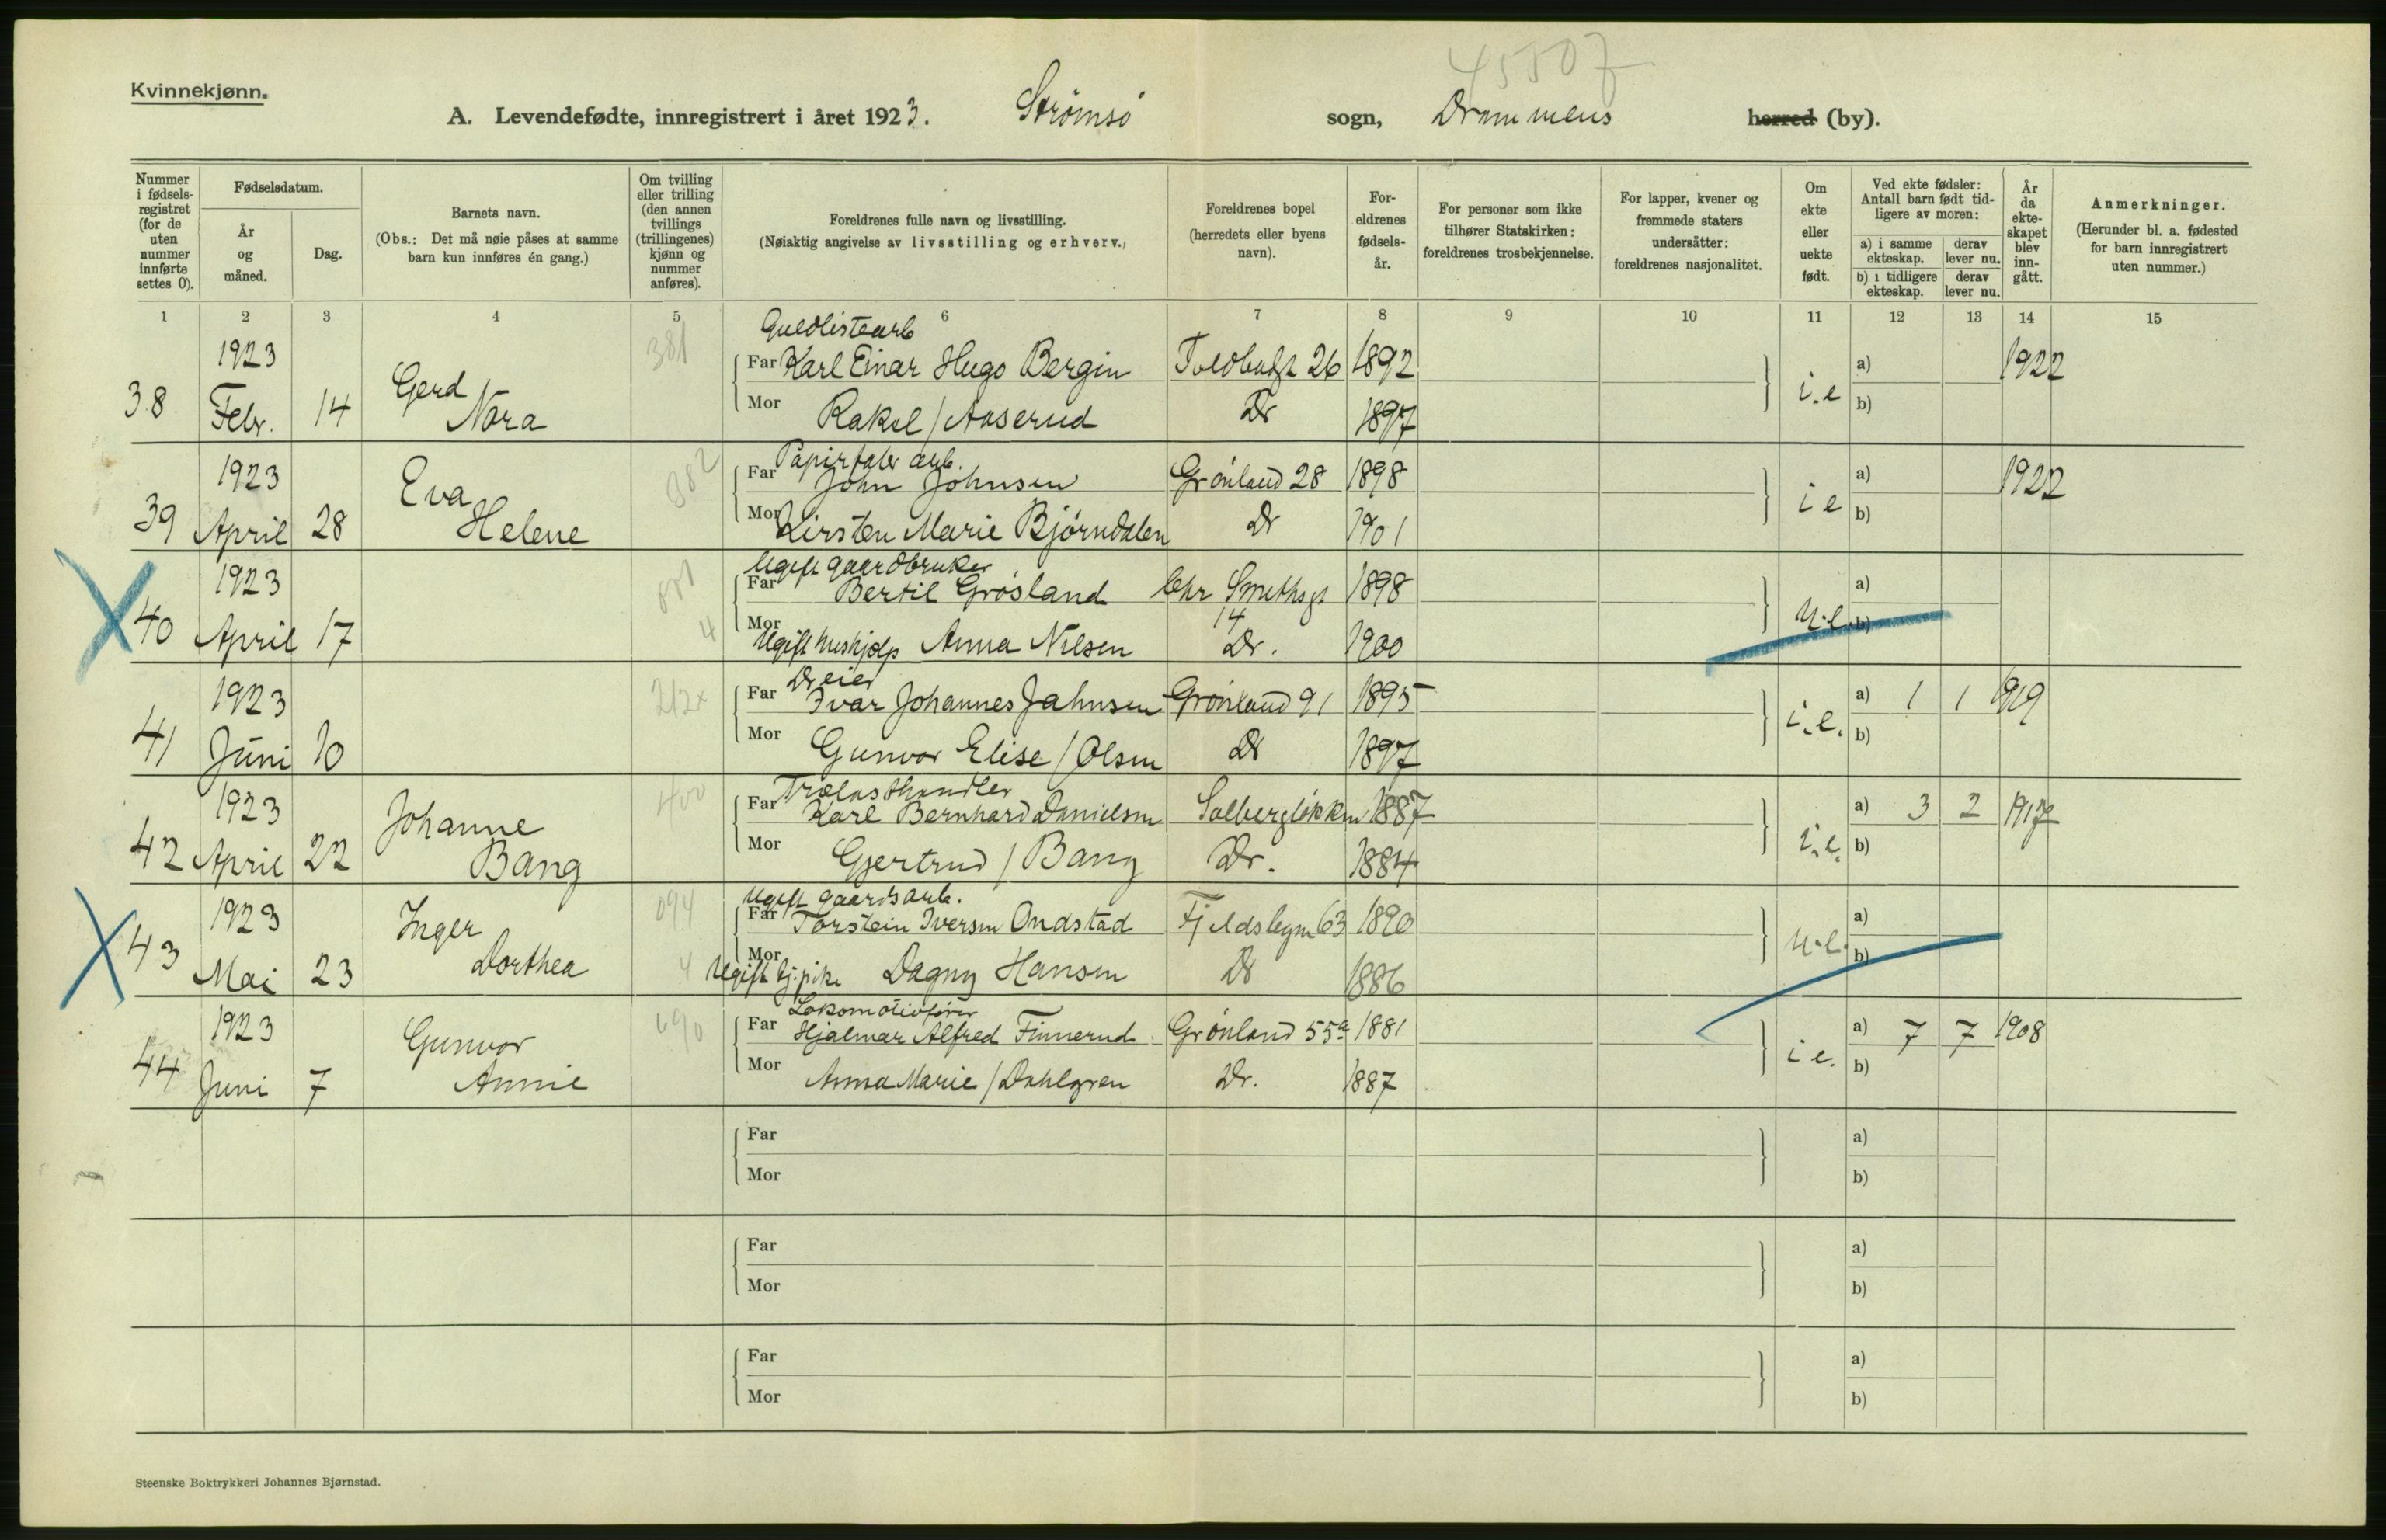 45507
Kvinnekjønn.
A. Levendefødte, innregistrert i året 1923. Strømsø sogn, Drammens herred (by).
Nummer i fødselsregistret (for de uten nummer innførte settes 0).
Fødselsdatum.
År og måned.
Dag.
Barnets navn.
(Obs.: Det må nøie påses at samme barn kun innføres én gang.)
Om tvilling eller trilling (den annen tvillings (trillingenes) kjønn og nummer anføres).
Foreldrenes fulle navn og livsstilling.
(Nøiaktig angivelse av livsstilling og erhverv.)
Foreldrenes bopel (herredets eller byens navn).
Foreldrenes fødselsår.
For personer som ikke tilhører Statskirken: foreldrenes trosbekjennelse.
For lapper, kvener og fremmede staters undersåtter: foreldrenes nasjonalitet.
Om ekte eller uekte født.
Ved ekte fødsler: Antall barn født tidligere av moren:
a) i samme ekteskap. derav lever nu.
b) i tidligere ekteskap. derav lever nu.
År da ekteskapet blev inngått.
Anmerkninger.
(Herunder bl. a. fødested for barn innregistrert uten nummer.)
1 2 3 4 5 6 7 8 9 10 11 12 13 14 15
381 Guldlistearb
1923 Far Karl Einar Hugo Bergin Toldbodgt 26 1892 a) 1922
38 Febr. 14 Gerd Nora Mor Raksel / Aaserud Dr 1897 i.e b)
382 Papirfabr arb.
1923 Far John Johnsen Grønland 28 1898 a) 1922
39 April 28 Eva Helene Mor Kirsten Marie Bjørndalen Dr 1901 i e b)
Ugift gaardbruker
1923 Far Bertil Grøsland Chr Smethsgt 14 1898 a)
40 April 17 4 Mor Ugift hushjelp Anna Nilsen Dr. 1900 u.e. b)
212x Dreier
1923 Far Ivar Johannes Jahnsen Grønland 91 1895 a) 1 1 1919
41 Juni 10 Mor Gunvor Elise / Olsen Dr 1897 i.e. b)
400 Trælasthandler
1923 Far Karl Bernhard Danielsen Solbergløkken 1887 a) 3 2 1917
42 April 22 Johanne Bang Mor Gjertrud / Bang Dr. 1884 i.e. b)
094 Ugift gaardsarb.
1923 Far Torstein Iversen Ondstad Fjeldsbyen 63 1890 a)
43 Mai 23 Inger Dorthea 4 Mor Ugift tj.pike Dagny Hansen Dr 1886 u.e. b)
690 Lokomotivfører
1923 Far Hjalmar Alfred Finnerud Grønland 55a 1881 a) 7 7 1908
44 Juni 7 Gunvor Annie Mor Anna Marie / Dahlgren Dr. 1887 i e. b)
Far a)
Mor b)
Far a)
Mor b)
Far a)
Mor b)
Steenske Boktrykkeri Johannes Bjørnstad.